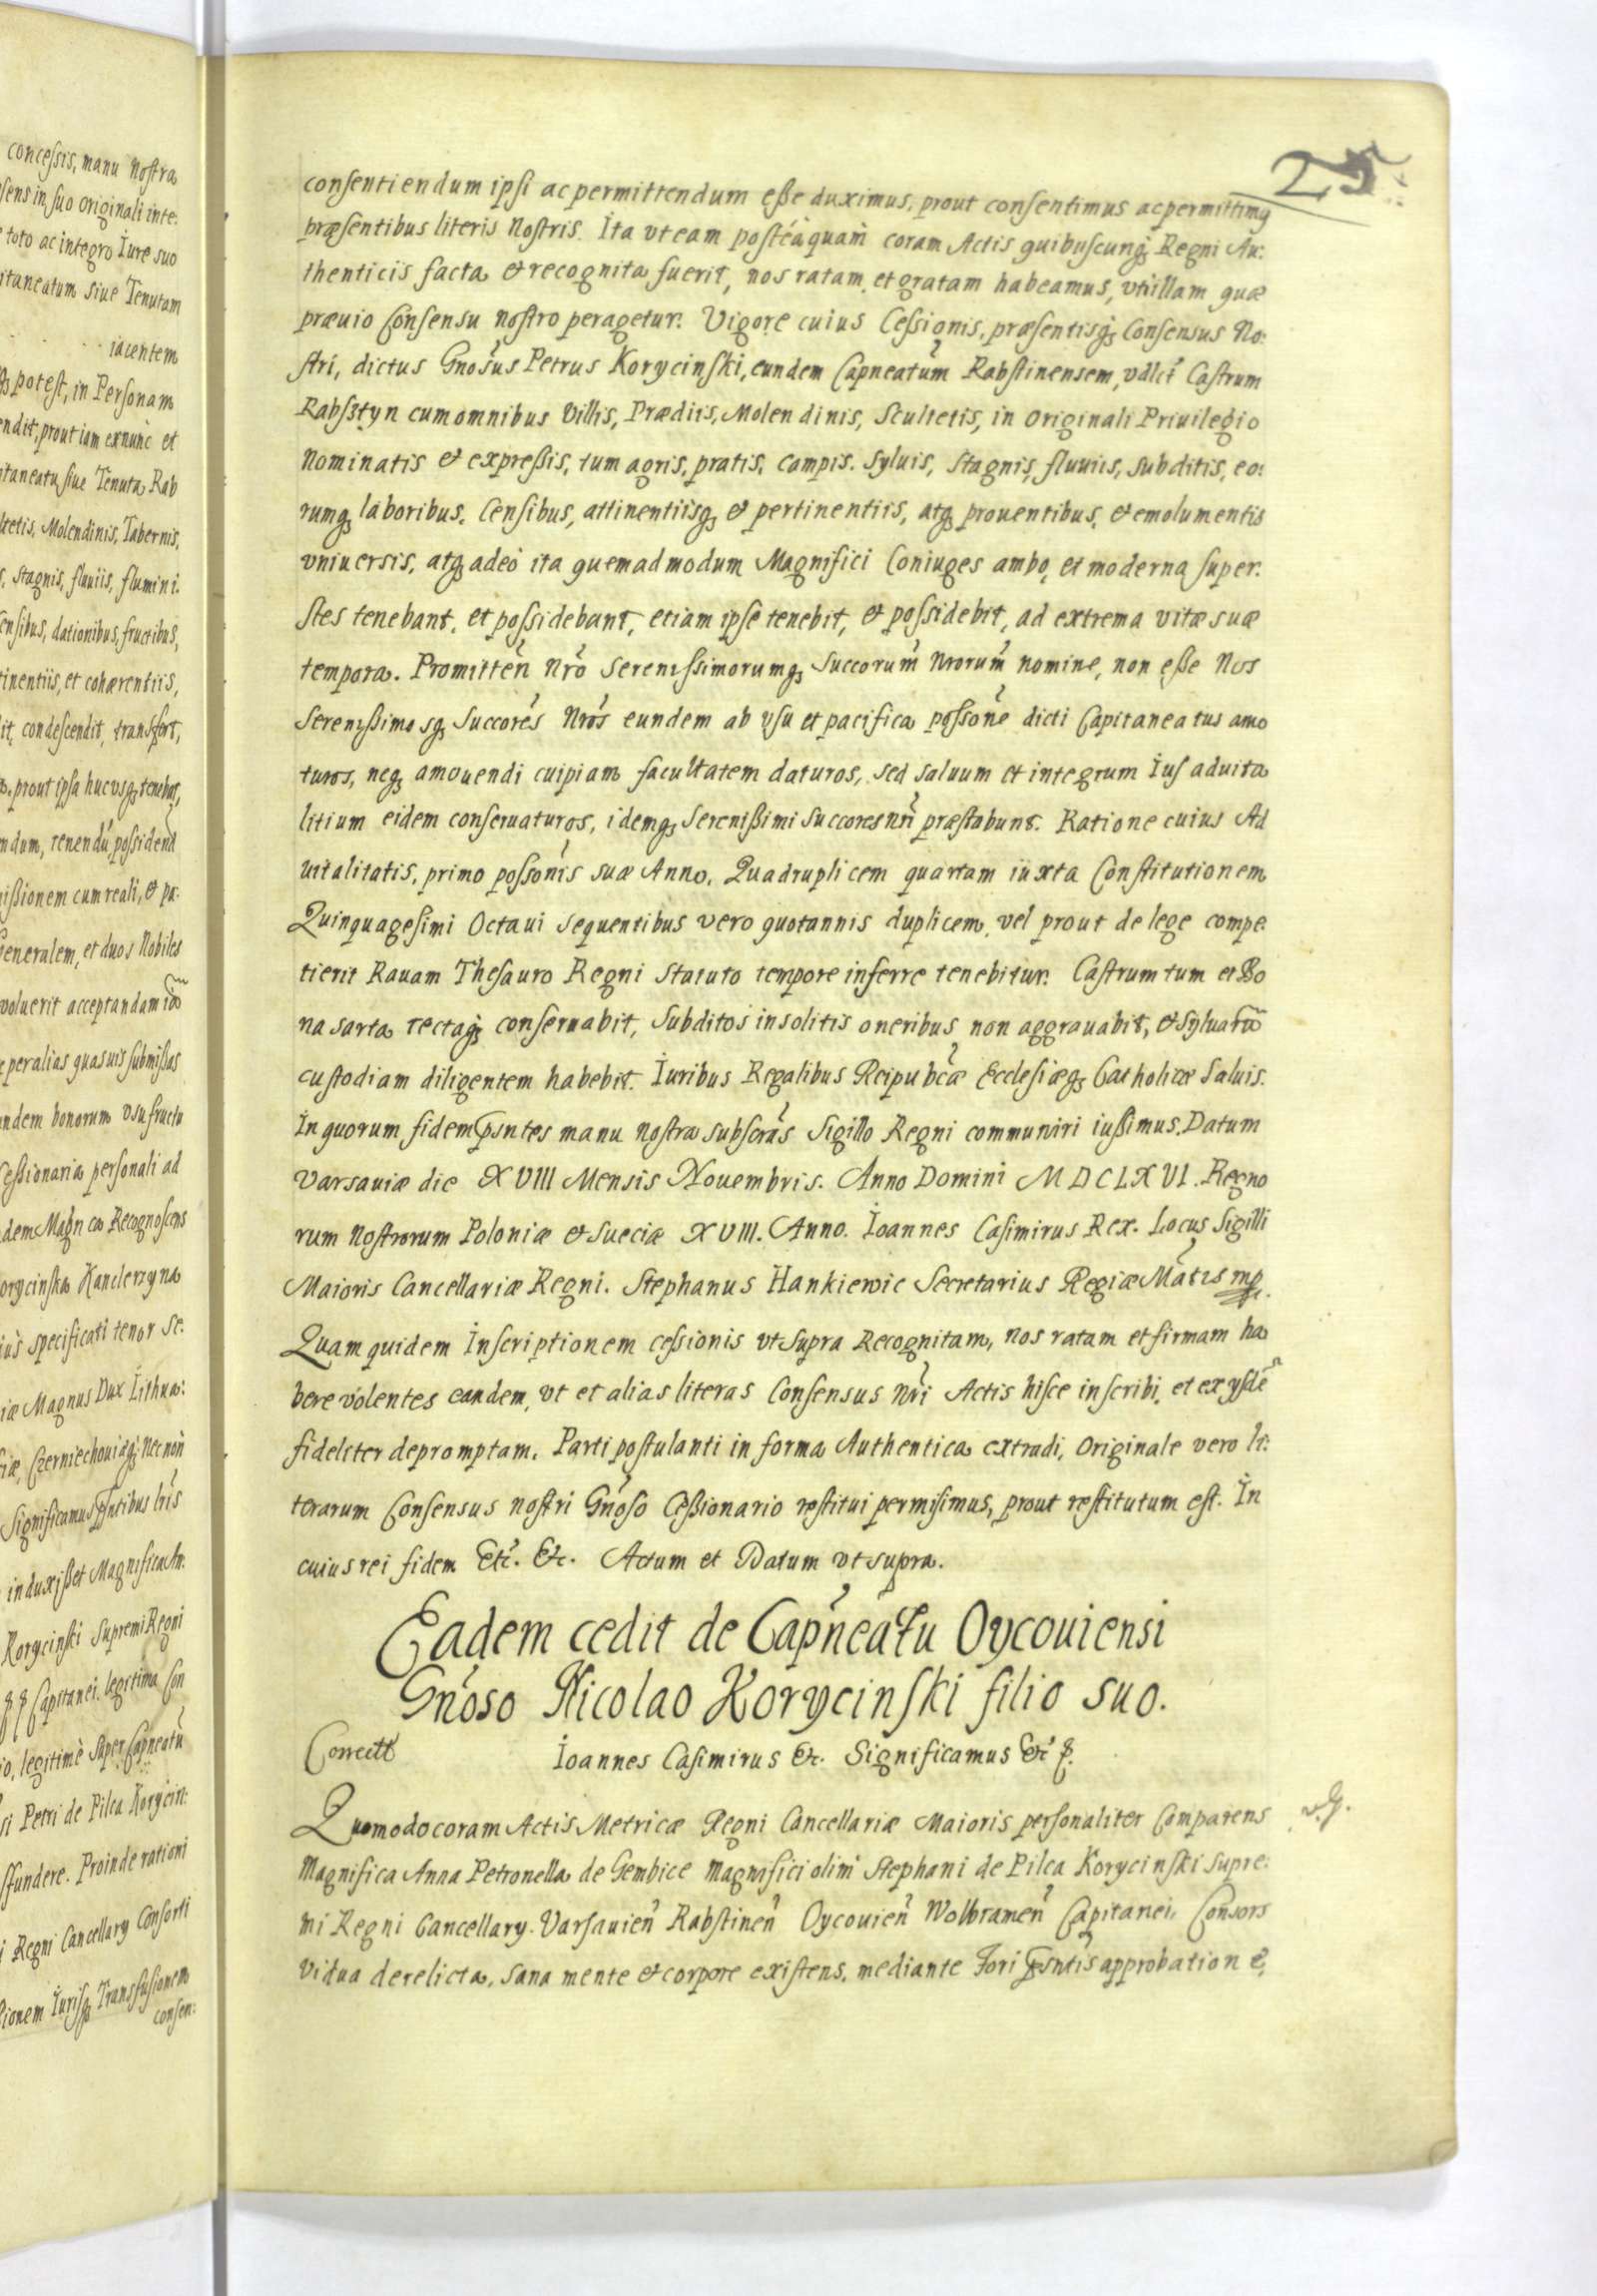 concessis, manu nostra
sens in suo originali inte:
toto ac integro Iure suo
itaneatum siue Tenutam
iacentem
potest, in Personam
endit, prout iam exnunc et
itaneatu siue Tenuta Rab
ltetis, Molendinis, Tabernis,
s, stagnis, fluuiis, flumini:
ensibus, dationibus, fructibus,
tinentiis, et cohærentiis,
it, condescendit, transfert,
prout ipsa hucusq; tenebat,
ndum, tenendũ possidend
issionem cum reali, & pa:
Generalem, et duos Nobiles
voluerit acceptandam
peralias quasuis submissas
undem bonorum usufructu
Cessionaria personali ad
dem Magn ca Recognoscens
orycinska Kanclerzyna
ius specificati tenor se:
iæ Magnus Dux Lithua:
iæ, Czerniechouiæq; necnon
Significamus Pñtibus lris
induxisset Magnifica An:
Korycinski Supremi Regni
Capitanei legitima Con
io, legitimè super Capneatũ
si Petri de Pilca Korycin:
sfundere. Proinde rationi
i Regni Cancellarÿ Consorti
sionem Iurisq; Transfusionem
consen:
25
consentiendum ipsi ac permittendum eße duximus, prout consentimus ac permittimq
præsentibus literis Nostris. Ita vt eam posteáquam coram Actis quibuscunq; Regni Au:
thenticis facta & recognita fuerit, nos ratam et gratam habeamus, vti illam quæ
præuio Consensu nostro peragetur. Vigore cuius Cessionis, præsentisq; Consensus No:
stri, dictus Gnosus Petrus Korycinski, eundem Capneatum Rabstinensem, vdlct Castrum
Rabsztyn cum omnibus Villis, Prædiis, Molendinis, Scultetis, in Originali Priuilegio
Nominatis & expreßis, tum agris, pratis, campis, syluis, stagnis, fluuiis, subditis, eo:
rumq; laboribus, Censibus, attinentiisq; & pertinentiis, atq; prouentibus, & emolumentis
vniuersis, atq; adeò ita quemadmodum Magnifici Coniuges ambo, et moderna super:
stes tenebant, et possidebant, etiam ipse tenebit, & possidebit, ad extrema vitæ suæ
tempora. Promitteñ Nrõ Serenissimorumq; Succorum̃ Nrorum̃ nomine, non eße Nos
Serenißimosq; Succores̃ Nrõs eundem ab vsu et pacifica possonẽ dicti Capitaneatus amo
turos, neq; amouendi cuipiam facultatem daturos, sed saluum et integrum Ius aduita
litium eidem conseruaturos, idemq; Serenißimi Succores nr̃i præstabunt. Ratione cuius Ad
uitalitatis, primo possonis̃ suæ Anno, Quadruplicem quartam iuxta Constitutionem
Quinquagesimi Octaui sequentibus vero quotannis duplicem, vel prout de lege compe:
tierit Rauam Thesauro Regni statuto tempore inferre tenebitur. Castrum tum et Bo
na sarta tectaq; conseruabit, subditos insolitis oneribus non aggrauabit, & syluarũ
custodiam diligentem habebit. Iuribus Regalibus Reipubcæ̃ Ecclesiæq; Catholicæ Saluis.
In quorum fidem psntes manu nostra subscras̃ Sigillo Regni communiri iußimus. Datum
Varsauiæ die XVIII Mensis Nouembris. Anno Domini MDCLXVI. Regno
rum Nostrorum Poloniæ & Sueciæ XVIII. Anno. Ioannes Casimirus Rex. Locus Sigilli
Maioris Cancellariæ Regni. Stephanus Hankiewic Secretarius Regiæ Mãtis mp.
Quam quidem Inscriptionem cessionis vt supra Recognitam, nos ratam et firmam ha
bere volentes eandem, vt et alias literas Consensus Nr̃i Actis hisce inscribi, et ex ysdẽ
fideliter depromptam, Parti postulanti in forma Authentica extradi, Originale vero li:
terarum Consensus nostri Gnoso Ceßionario restitui permisimus, prout restitutum est. In
cuius rei fidem Etc. &c. Actum et Datum vt supra.
Eadem cedit de Capñeatu Oycouiensi
Gñoso Nicolao Korycinski filio suo.
Correctt
Ioannes Casimirus &c. Significamus &c
Quomodo coram Actis Metricæ Regni Cancellariæ Maioris personaliter Comparens
Magnifica Anna Petronella de Gembice Magnifici olim Stephani de Pilca Korycinski supre:
mi Regni Cancellarÿ. Varsauieñ Rabstineñ Oycouieñ Wolbrameñ Capitanei, Consors
Vidua derelicta, sana mente & corpore existens, mediante Fori Psntis approbatione,